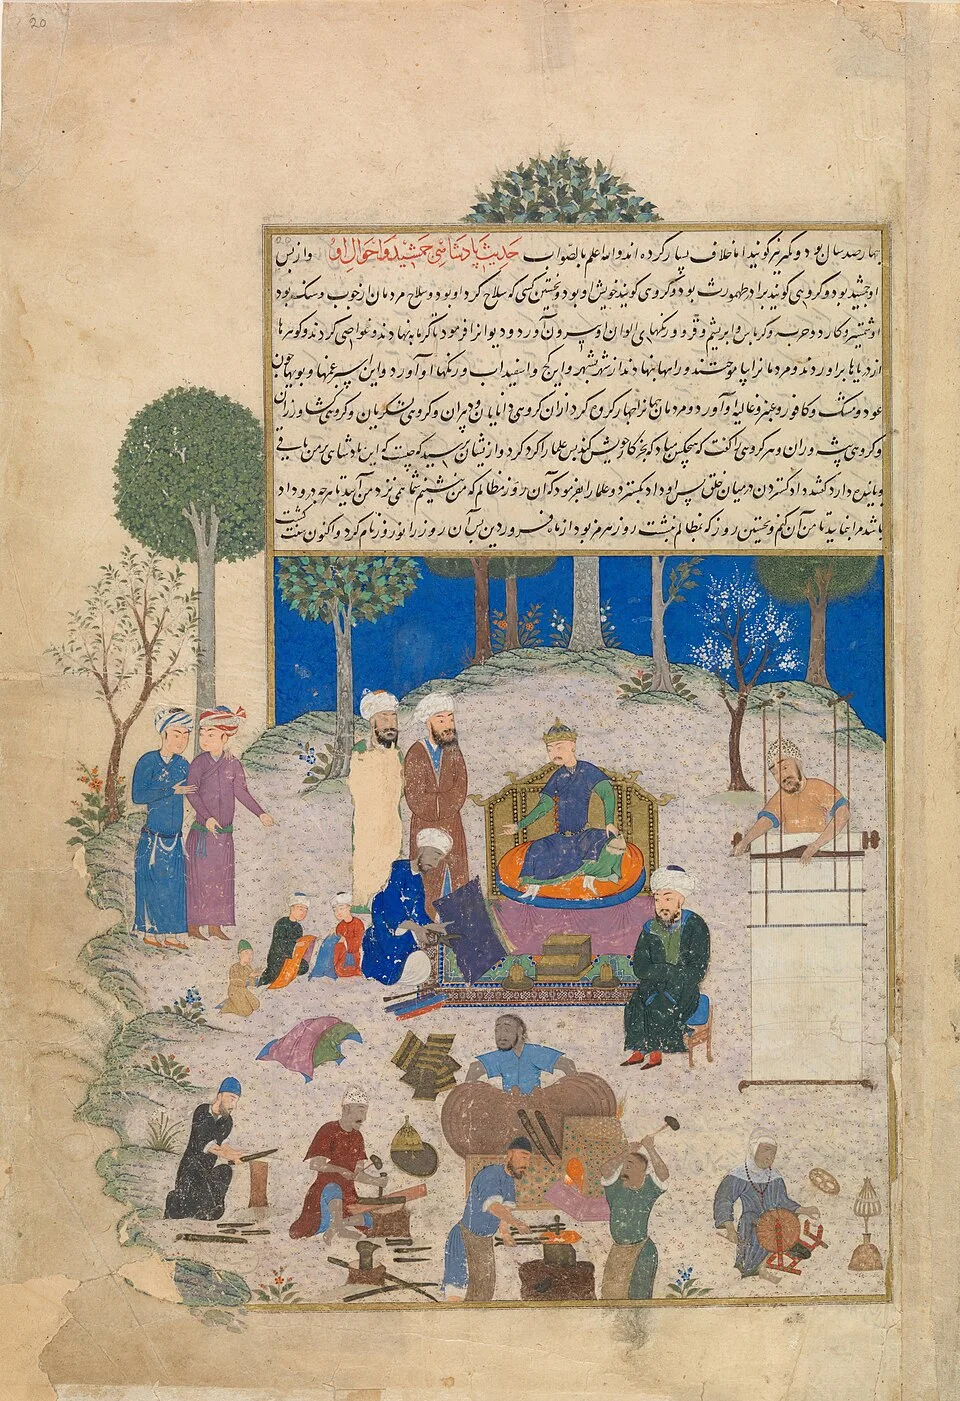 20
چهارصد سال بود و دیگر نیز گویند اما خلاف بسیار کرده‌اند والله اعلم بالصواب حدیث پادشاهی جمشید و احوال او و از پس
او جمشید بود و گروهی گویند برادر طهمورث بود و گروهی گویند خویش او بود و نخستین کسی که سلاح کرد او بود و سلاح مردمان از چوب و سنگ بود
او شمشیر و کارد و حرب و کرباس و ابریشم و قز و رنگهای الوان او بیرون آورد و دیوانرا فرمود تا گرمابه نهادند و غواصی کردند و گوهرها
از دریاها برآوردند و مردمانرا بیاموختند و راهها نهادند از شهر بشهر و این گچ و اسفیداب و رنگها او آورد و این اسپرغمها و بویها چون
عود و مشک و کافور و عنبر و غالیه او آورد و مردمان جهانرا چهار گروه کرد ازان گروهی دانایان و دبیران و گروهی لشکریان و گروهی کشاورزان
و گروهی پیشه‌وران و هر گروهی را گفت که هیچکس مباد که بجز کار خویش کند پس علما را گرد کرد و ازیشان پرسید که چیست که این پادشاهی بر من باقی
و پاینده دارد گفتند داد گستردن در میان خلق پس او داد بگسترد و علما را بفرمود که آن روز مظالم که من بنشینم شما همی نزد من آیید تا هرچه درو داد
باشد مرا بنمایید تا من آن کنم و نخستین روز که بمظالم بنشست روز هرمز بود از ماه فروردین پس آن روز را نوروز نام کرد و اکنون سنت گشت